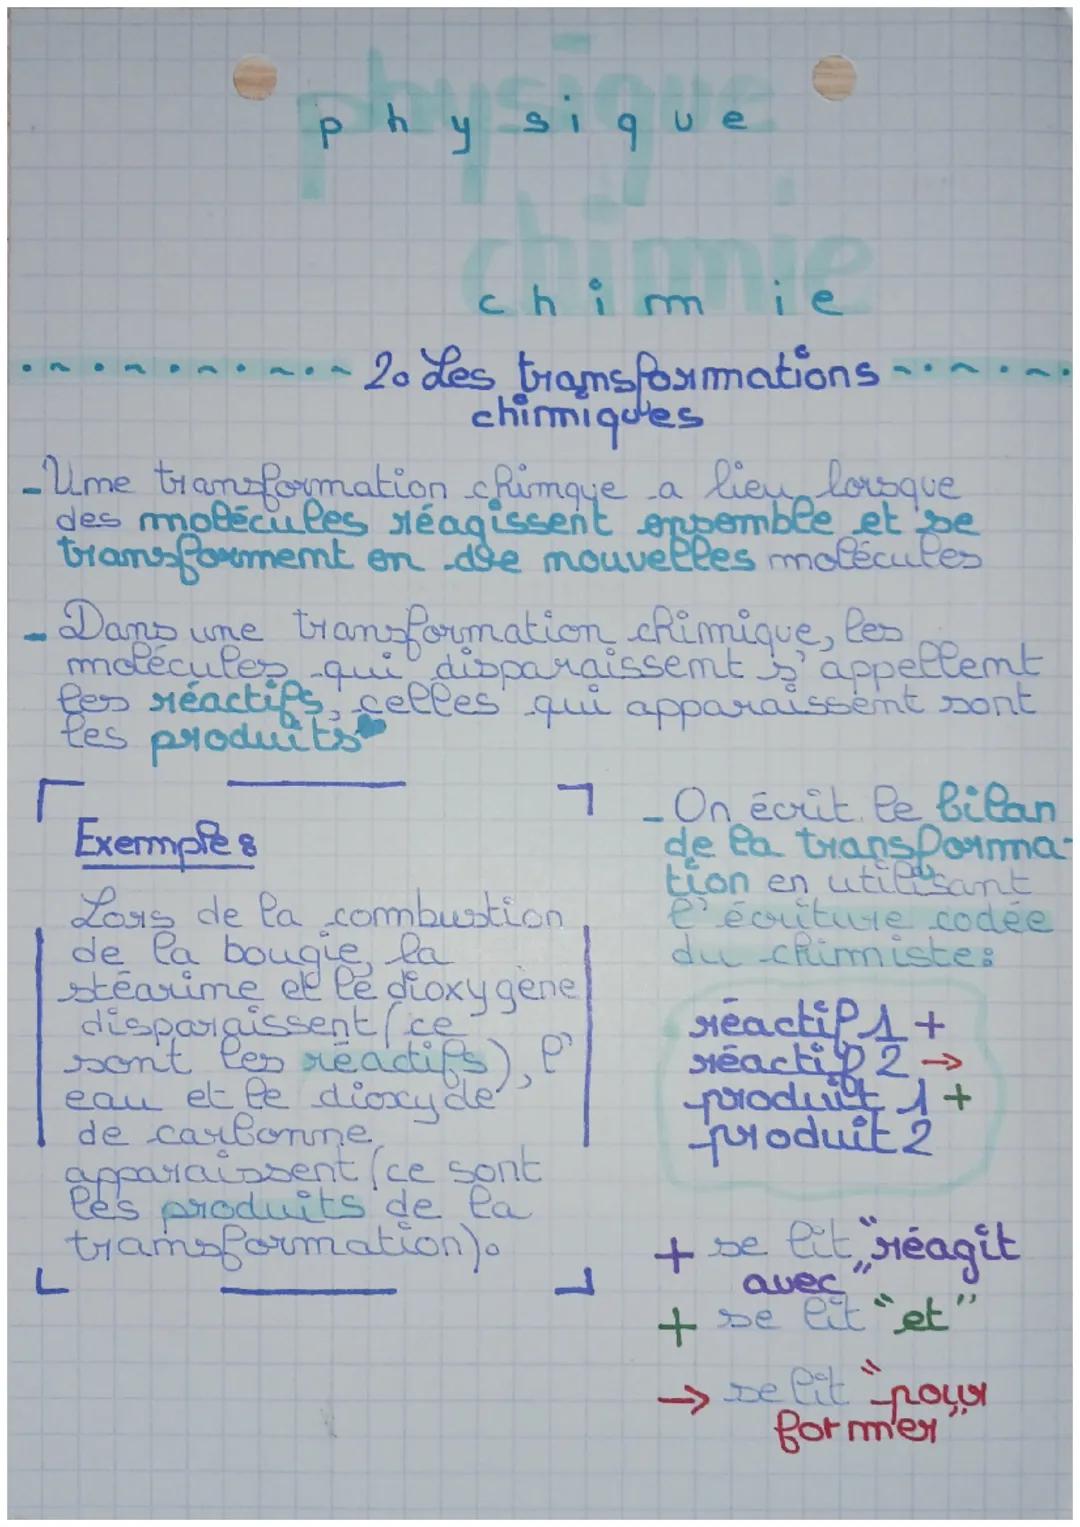 physique
chimie
physique
chimie
2. Les transformations
chimiques
- Une transformation chimque a lieu lorsque
des molécules réagissent ensemble et se
transforment en de nouvelles molécules
- Dans une transformation chimique, les
molécules qui disparaissent s'appellent
les réactifs, celles qui apparaissent sont
les produits
Exemple :
Lors de la combustion
de la bougie, la
stéarine et le dioxygène
disparaissent (ce
sont les réactifs), l'
eau et le dioxyde
de carbonne
apparaissent (ce sont
les produits de la
transformation).
- On écrit le bilan
de la transforma-
tion en utilisant
l'écriture codée
du chimiste :
réactif 1 +
réactif 2 →
produit 1 +
produit 2
+ se lit "réagit
avec"
+ se lit "et"
→ se lit "pour
former"